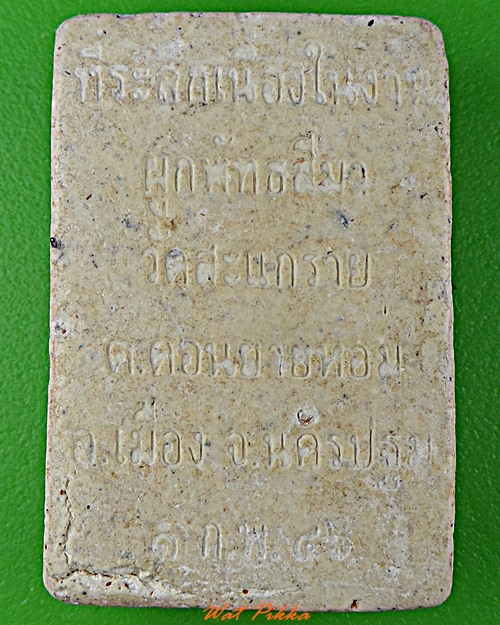 ที่ระลึกเนื่องในงาน
ผูกพัทธสีมา
วัดสะแกราย
ต.ดอนยายหอม
อ.เมือง จ.นครปฐม
๑ ก.พ. ๔๖
Wat Pikka